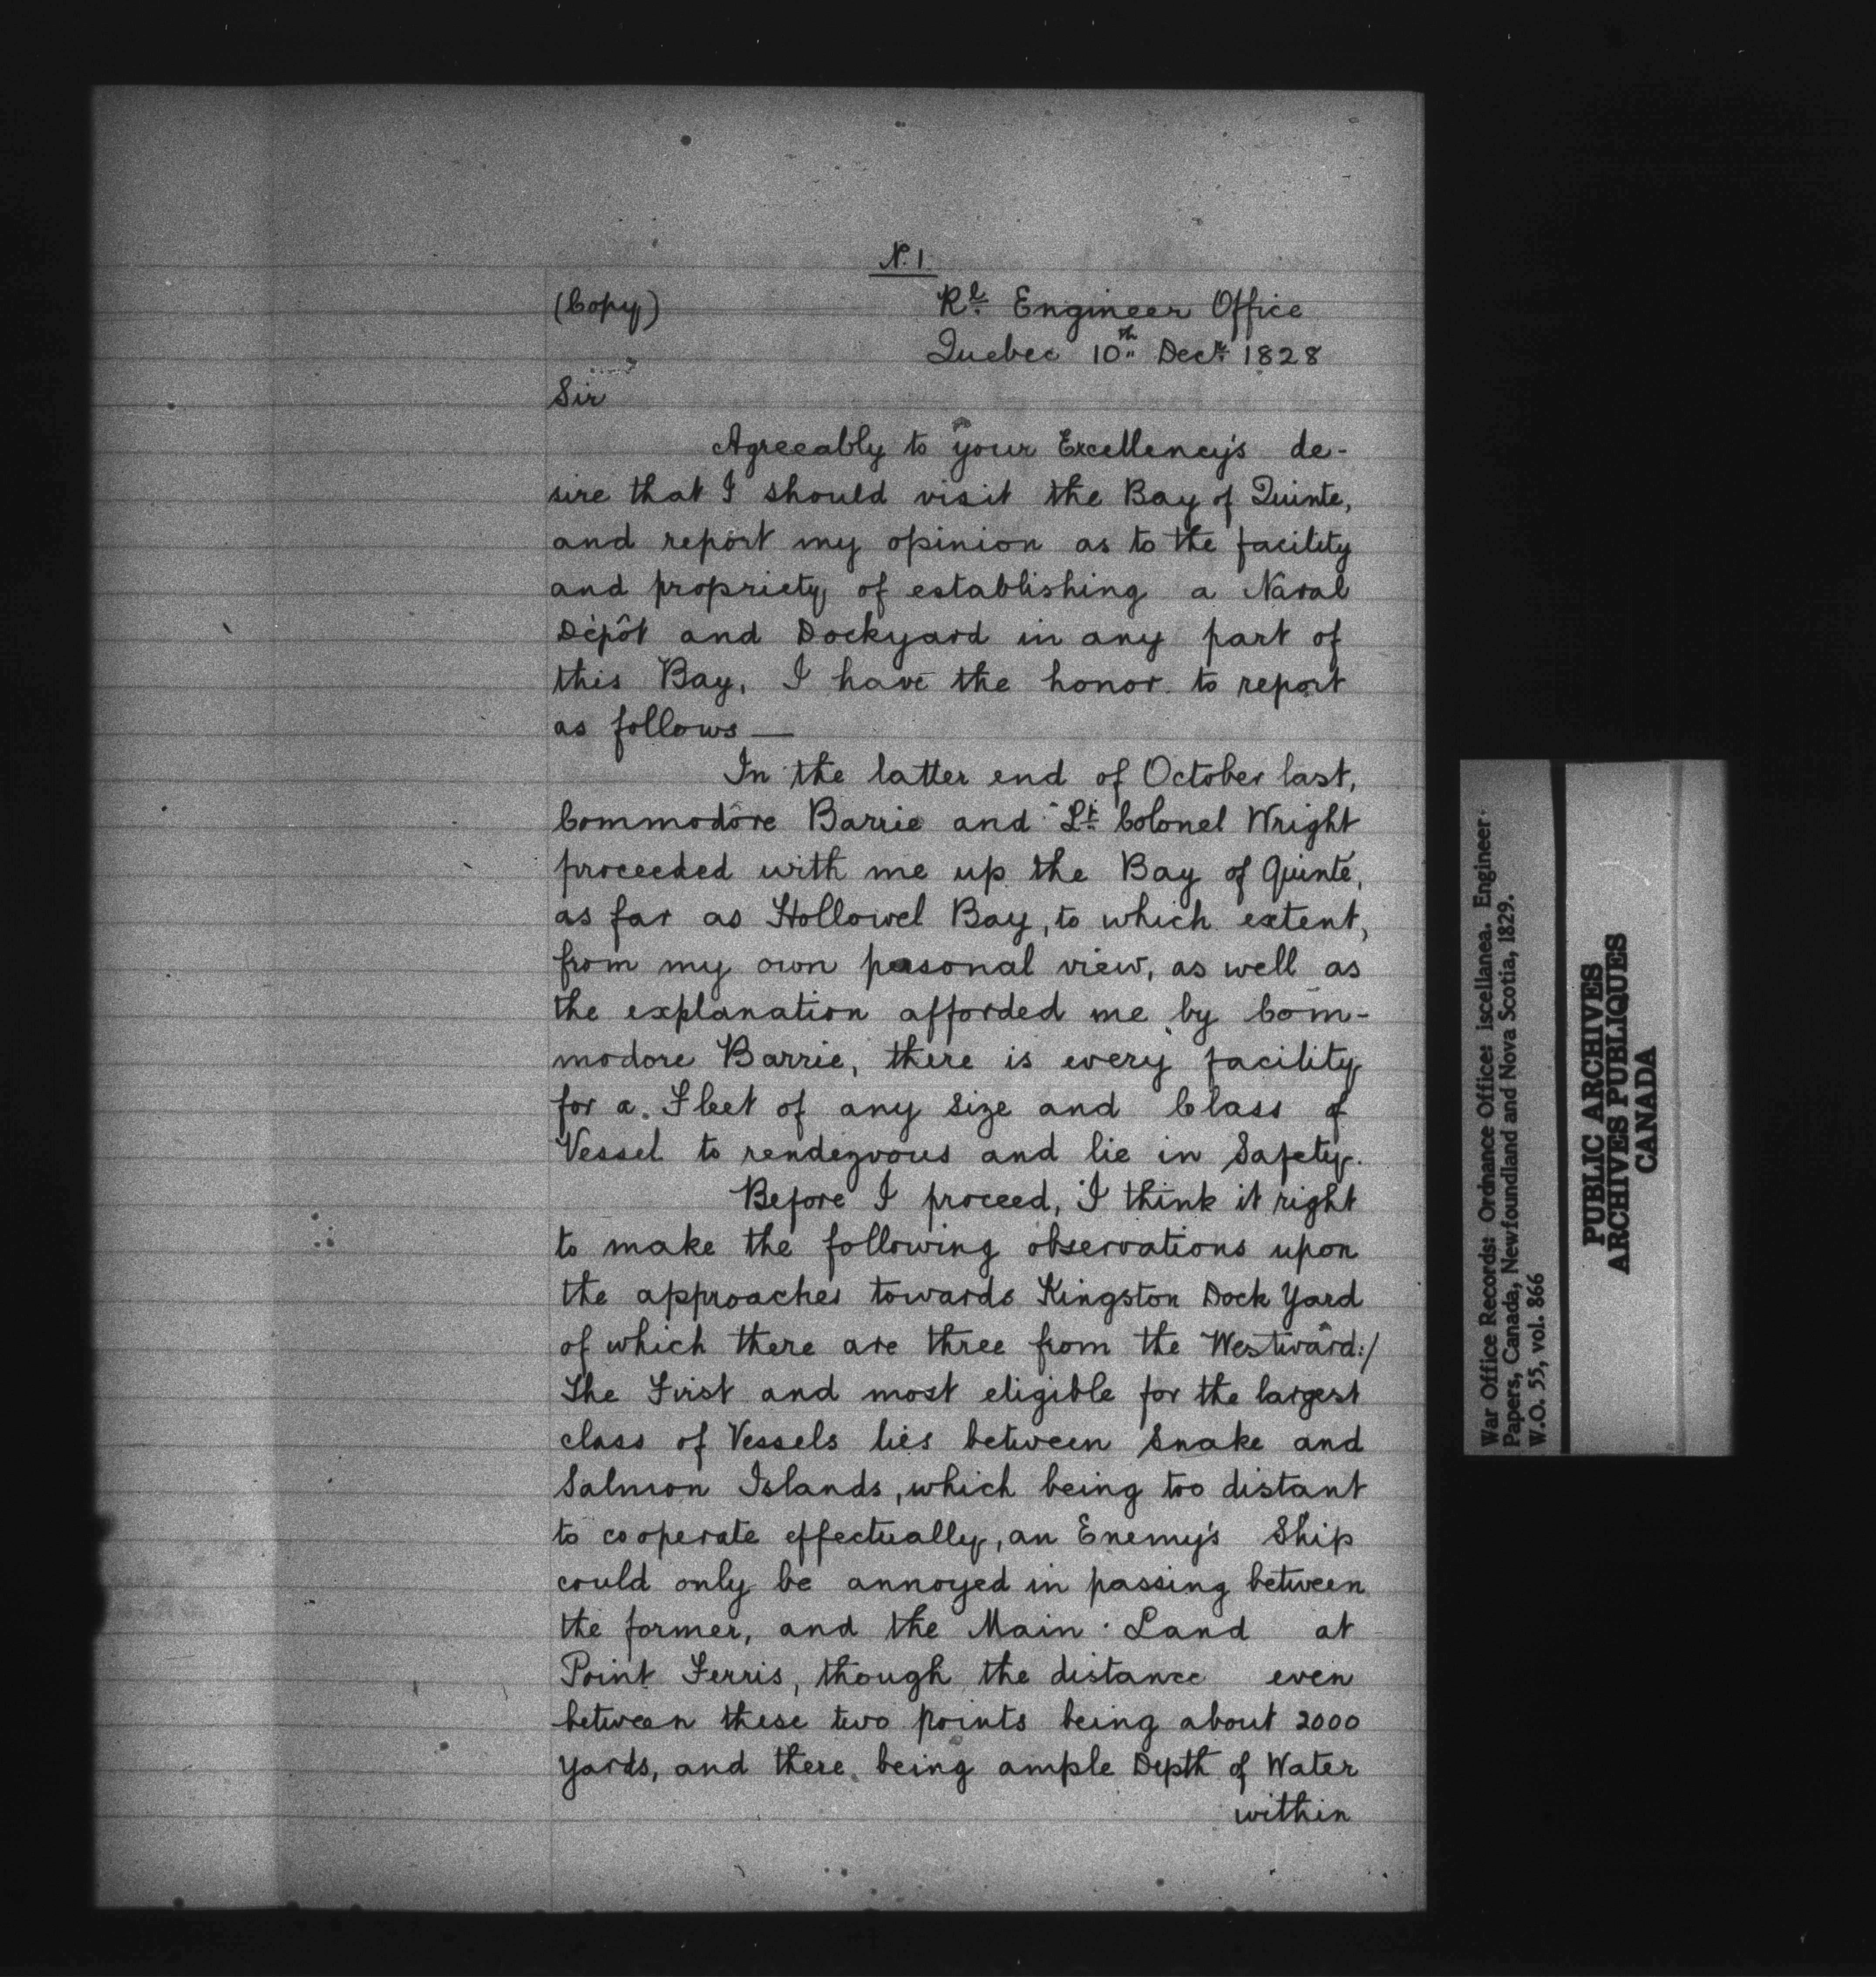 N. 1.
(Copy)
Rl. Engineer Office
Quebec 10th Decr. 1828
Sir
Agreeably to your Excellency's de-
sire that I should visit the Bay of Quinte,
and report my opinion as to the facility
and propriety of establishing a Naval
Dépôt and Dockyard in any part of
this Bay, I have the honor to report
as follows —
In the latter end of October last,
Commodore Barrie and Lt. Colonel Wright
proceeded with me up the Bay of Quinté,
as far as Hollowel Bay, to which extent,
from my own personal view, as well as
the explanation afforded me by Com-
modore Barrie, there is every facility
for a Fleet of any Size and Class of
Vessel to rendezvous and lie in Safety.
Before I proceed, I think it right
to make the following observations upon
the approaches towards Kingston Dock Yard
of which there are three from the Westward:/
The First and most eligible for the largest
class of Vessels lies between Snake and
Salmon Islands, which being too distant
to cooperate effectually, an Enemy's Ship
could only be annoyed in passing between
the former, and the Main Land at
Point Ferris, though the distance even
between these two points being about 2000
yards, and there being ample Depth of Water
within
War Office Records: Ordnance Office: iscellanea. Engineer
Papers, Canada, Newfoundland and Nova Scotia, 1829.
W.O. 55, vol. 866
PUBLIC ARCHIVES
ARCHIVES PUBLIQUES
CANADA